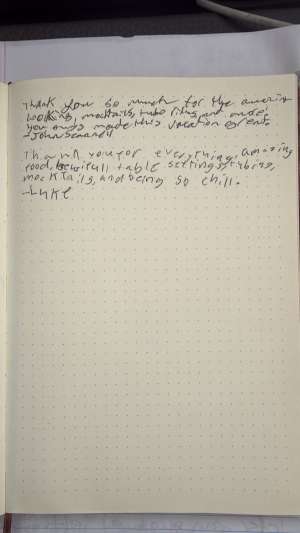 Thank you so much for the amazing
cooking, mocktails, tube rides, and more.
You guys made this vacation great.
-John
Thank you for everything, amazing
food, beutifull table settings, tubing,
mocktails, and being so chill.
-Luke